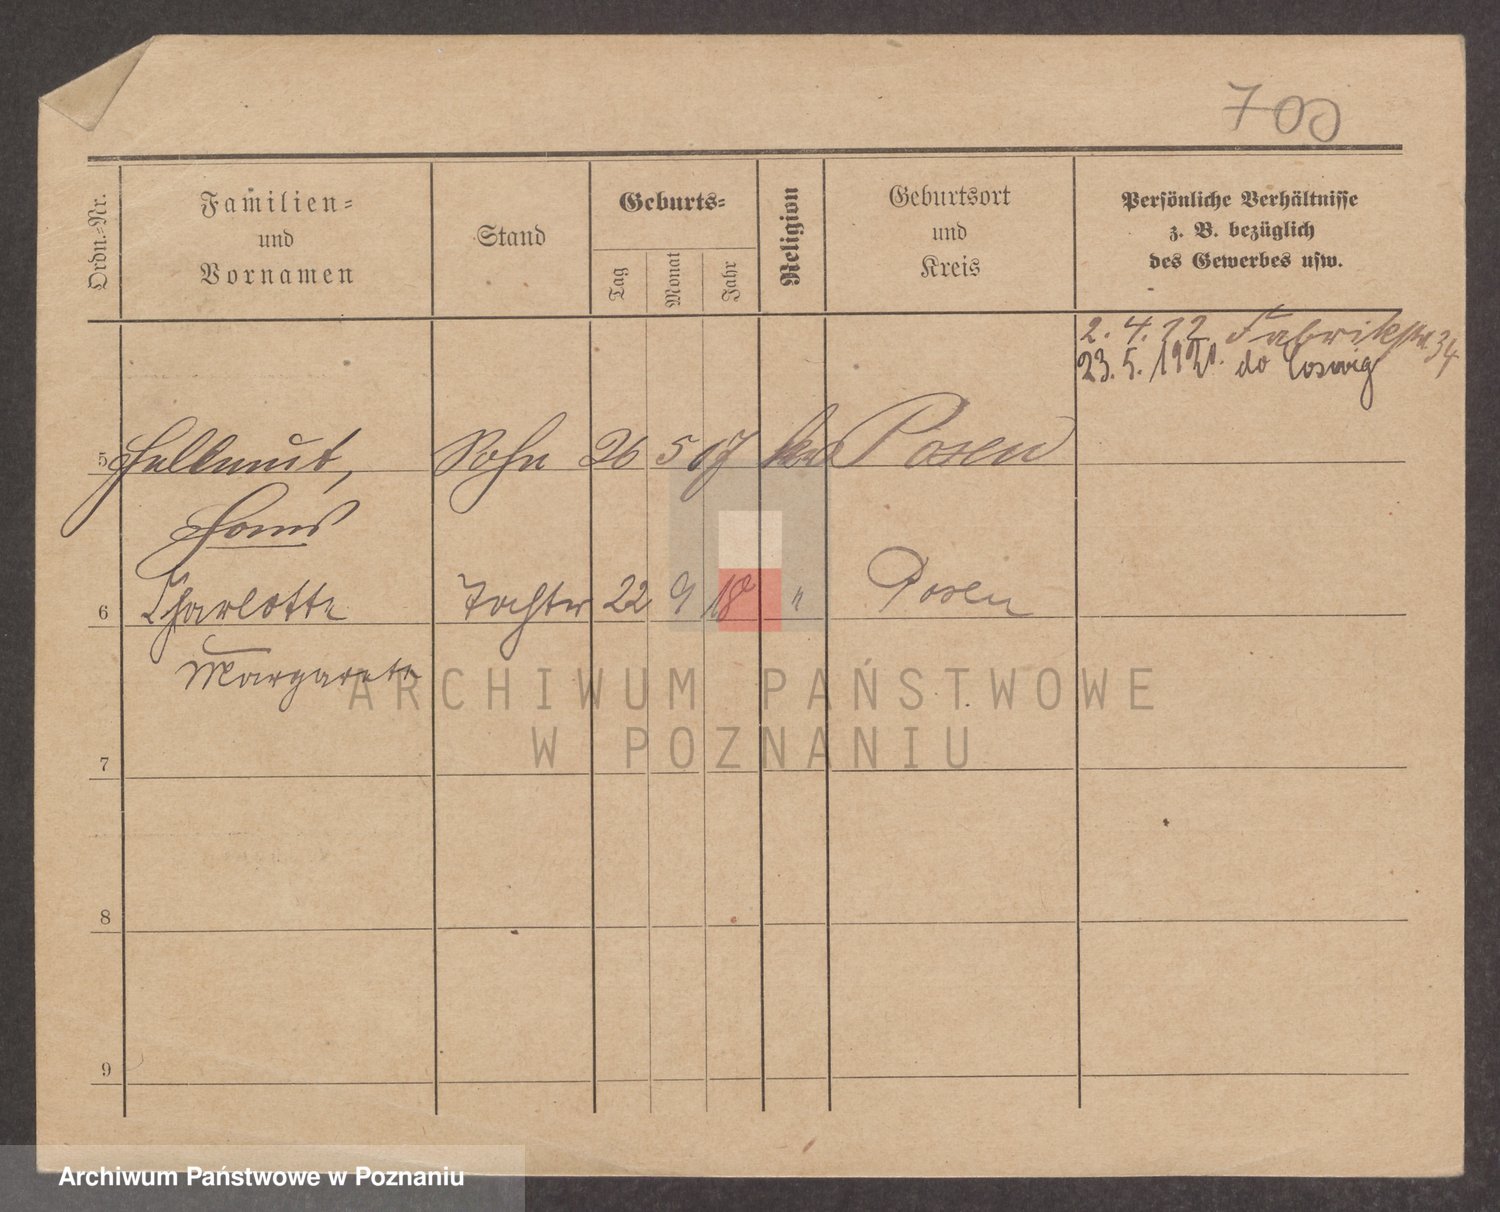 700
Ordn.=Nr.
Familien=
und
Vornamen
Stand
Geburts=
Tag
Monat
Jahr
Religion
Geburtsort
und
Kreis
Persönliche Verhältnisse
z. B. bezüglich
des Gewerbes usw.
2. 4. 12 Fabrikstr. 34
23. 5. 1921. do Coswig
5 Hellmut, Sohn 26 5 17 Posen
Hans
6 Charlotte Tochter 22 9 18 " Posen
Margarete
7
8
9
ARCHIWUM PAŃSTWOWE
W POZNANIU
Archiwum Państwowe w Poznaniu